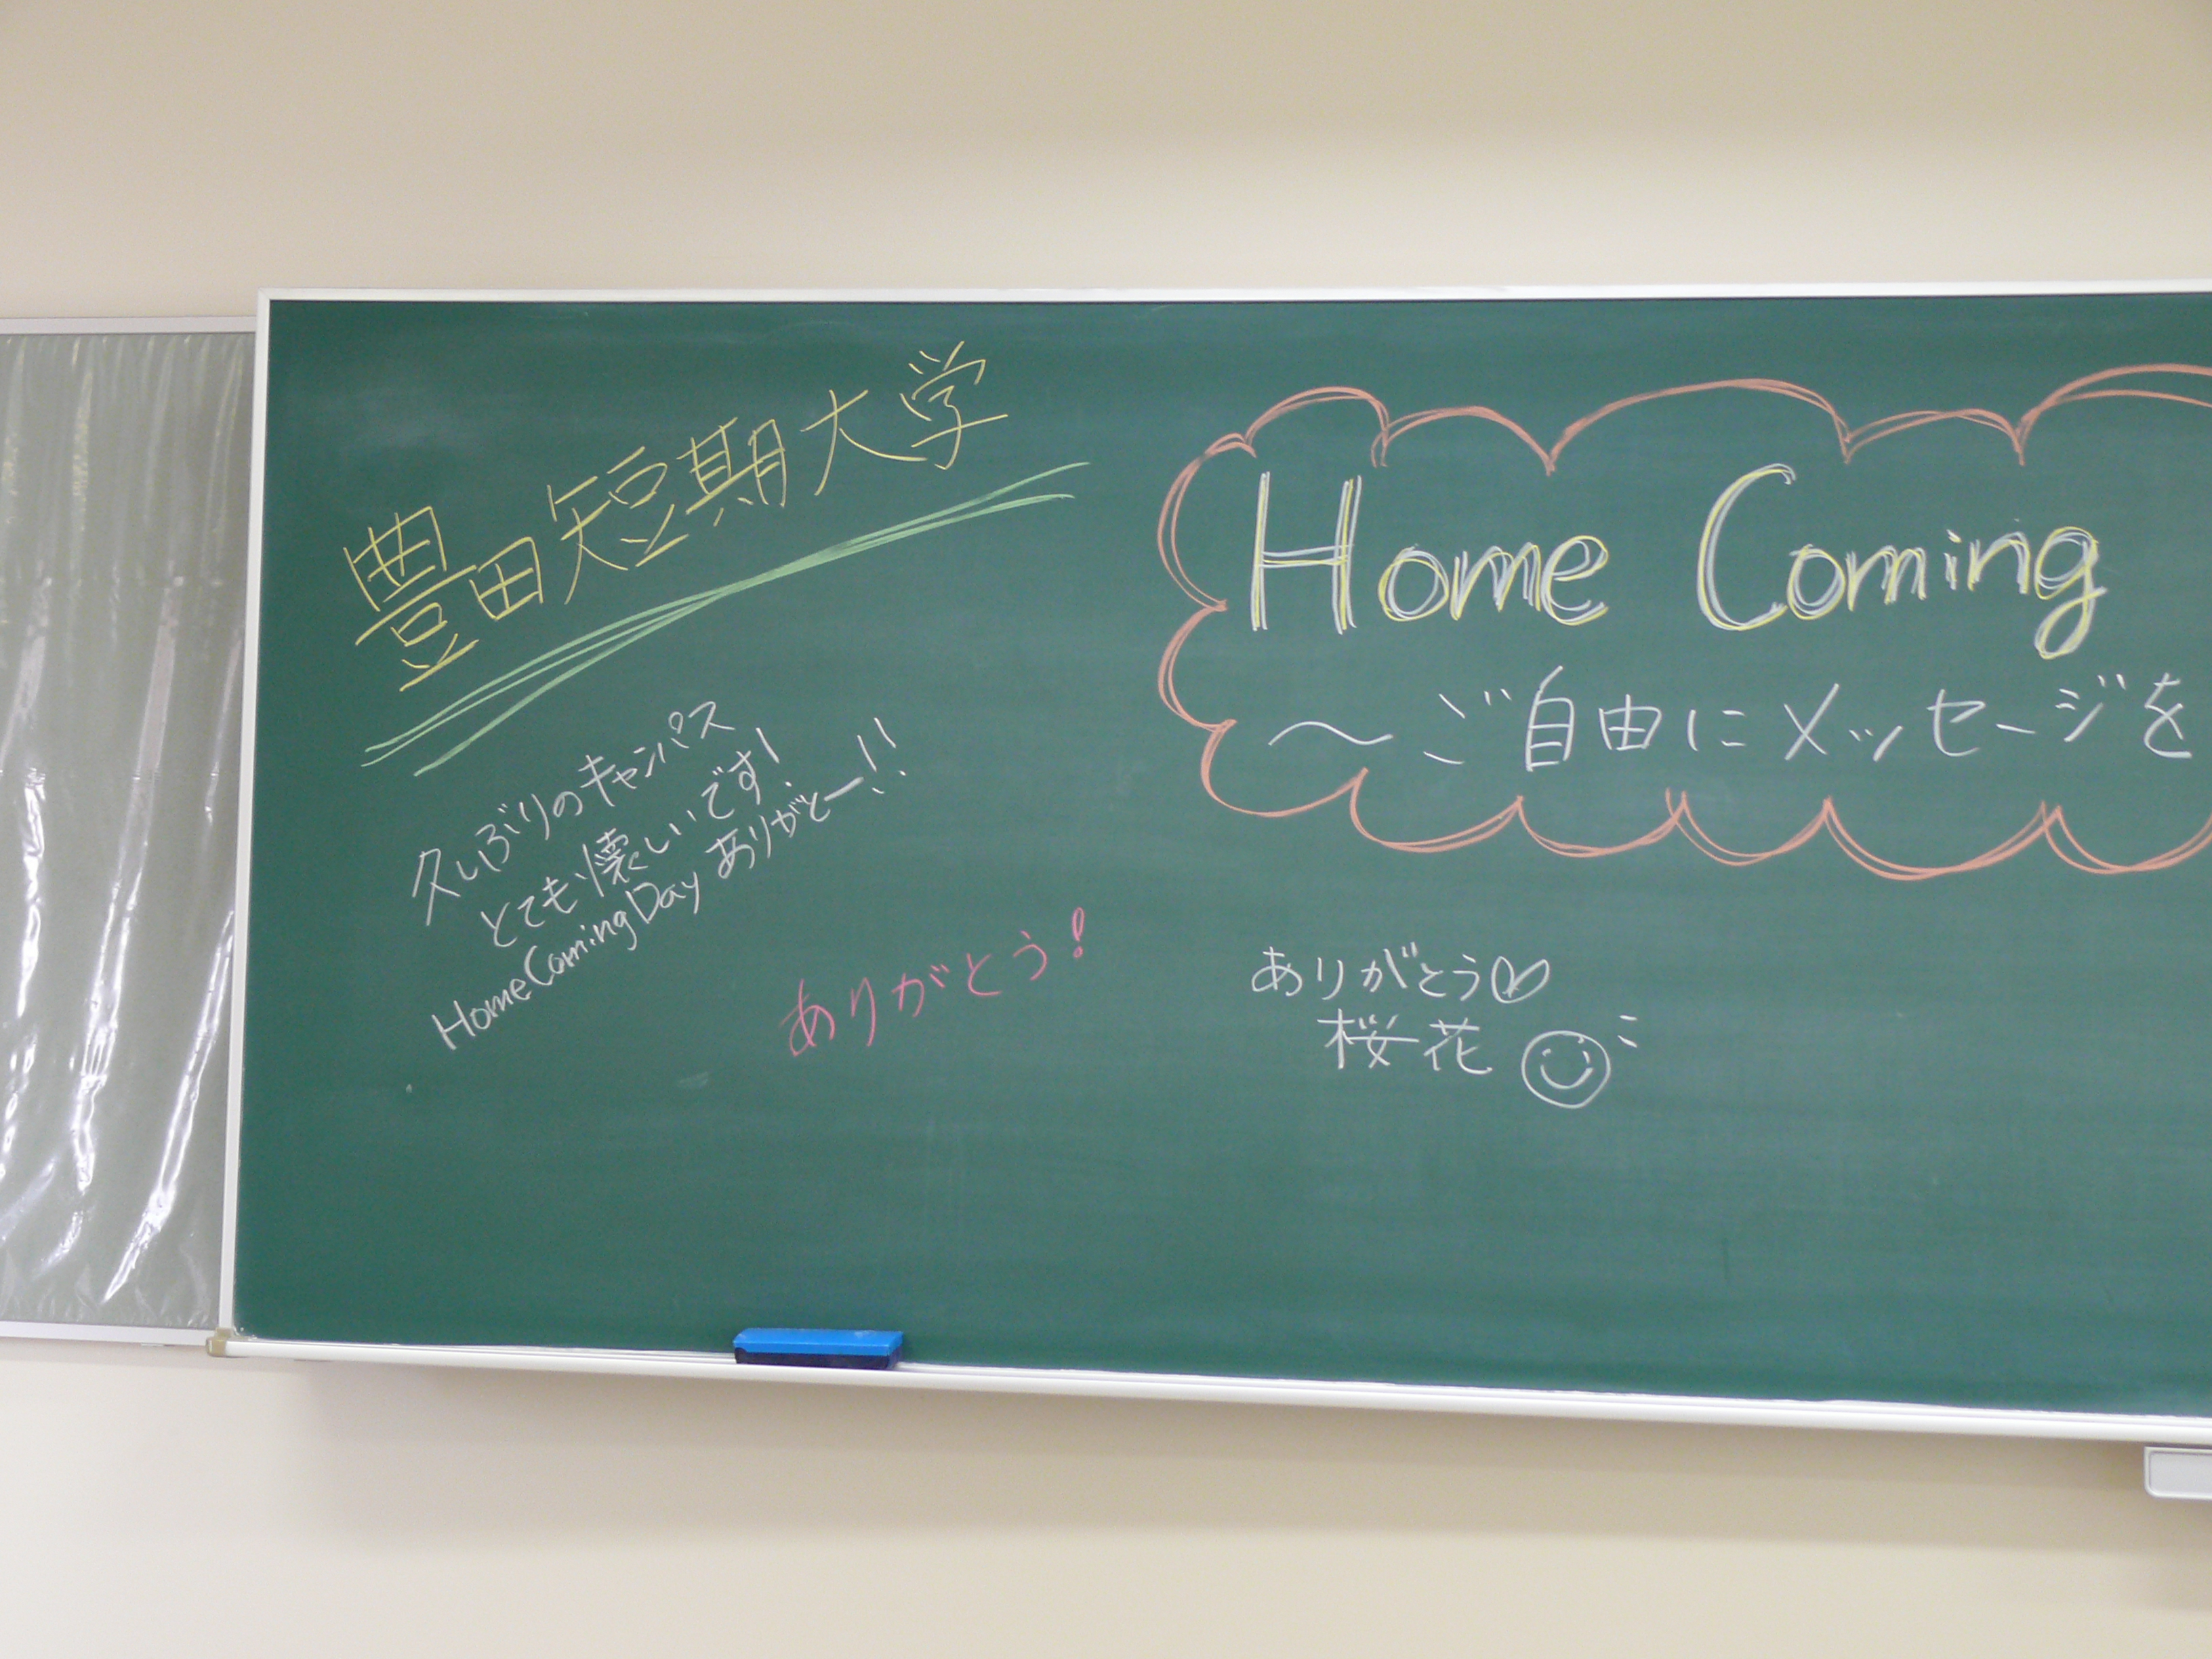 豊田短期大学
久しぶりのキャンパス
とても懐しいです!
HomeComingDay ありがとー!!
ありがとう!
Home Coming
～ご自由にメッセージを
ありがとう♡
桜花